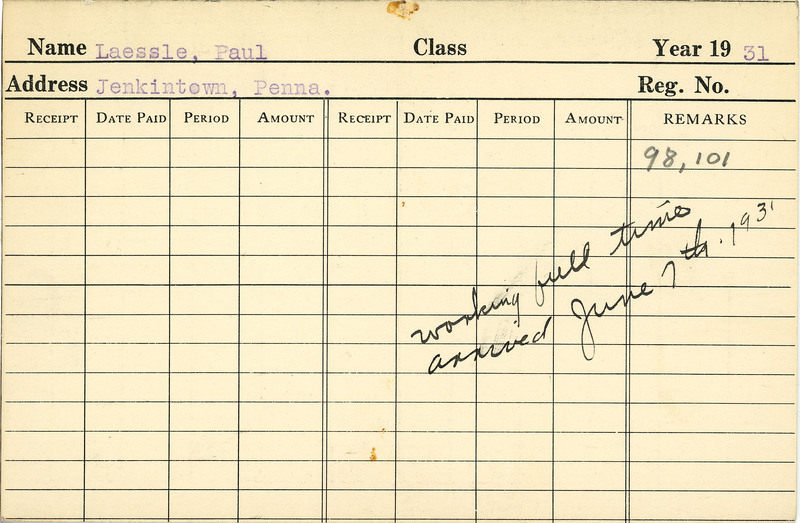 Name Laessle, Paul Class Year 19 31
Address Jenkintown, Penna. Reg. No.
RECEIPT DATE PAID PERIOD AMOUNT RECEIPT DATE PAID PERIOD AMOUNT REMARKS
98, 101
working full time
arrived June 7th. 1931